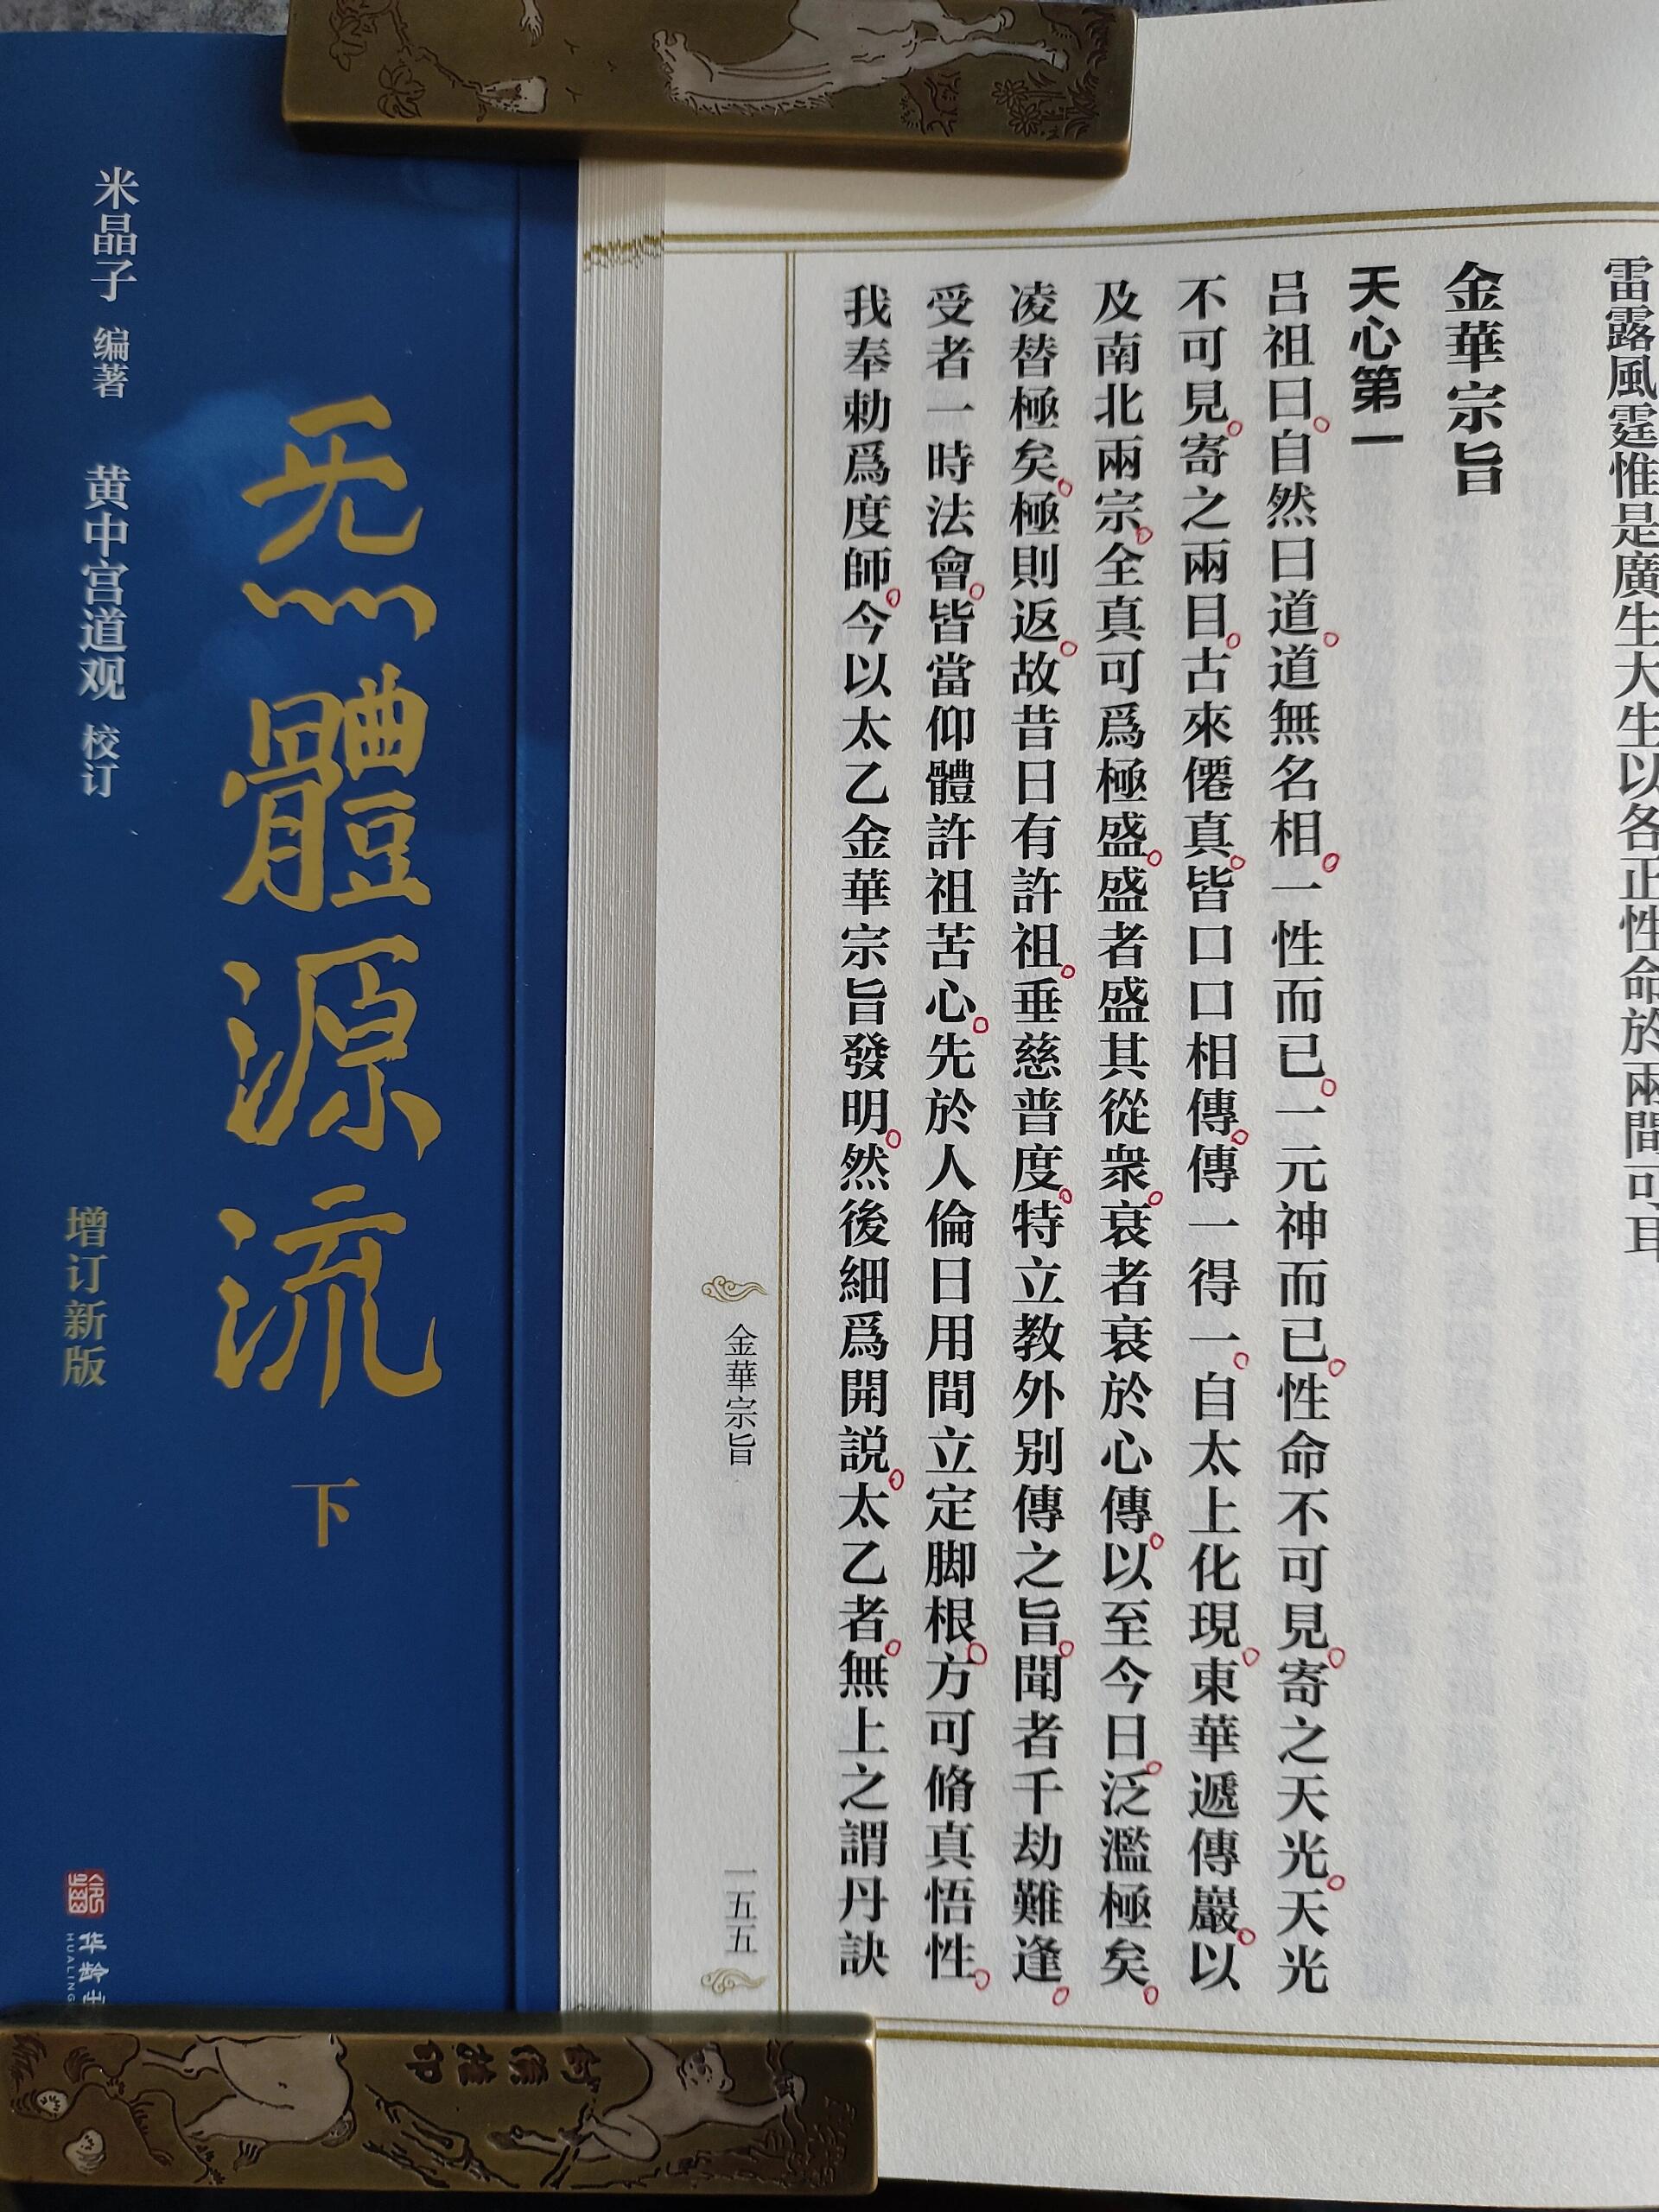 雷露風霆惟是廣生大生以各正性命於兩間可耳
金華宗旨
天心第一
吕祖曰。自然曰道。道無名相。一性而已。一元神而已。性命不可見。寄之天光。天光
不可見。寄之兩目。古來僊真。皆口口相傳。傳一得一。自太上化現。東華遞傳巖。以
及南北兩宗。全真可爲極盛。盛者盛其從衆。衰者衰於心傳。以至今日。泛濫極矣。
凌替極矣。極則返。故昔日有許祖。垂慈普度。特立教外别傳之旨。聞者千劫難逢。
受者一時法會。皆當仰體許祖苦心。先於人倫日用間立定脚根。方可脩真悟性。
我奉勅爲度師。今以太乙金華宗旨發明。然後細爲開説。太乙者。無上之謂丹訣
金華宗旨
一五五
炁體源流 下
米晶子 编著
黄中宫道观 校订
增订新版
华龄出
HUALING